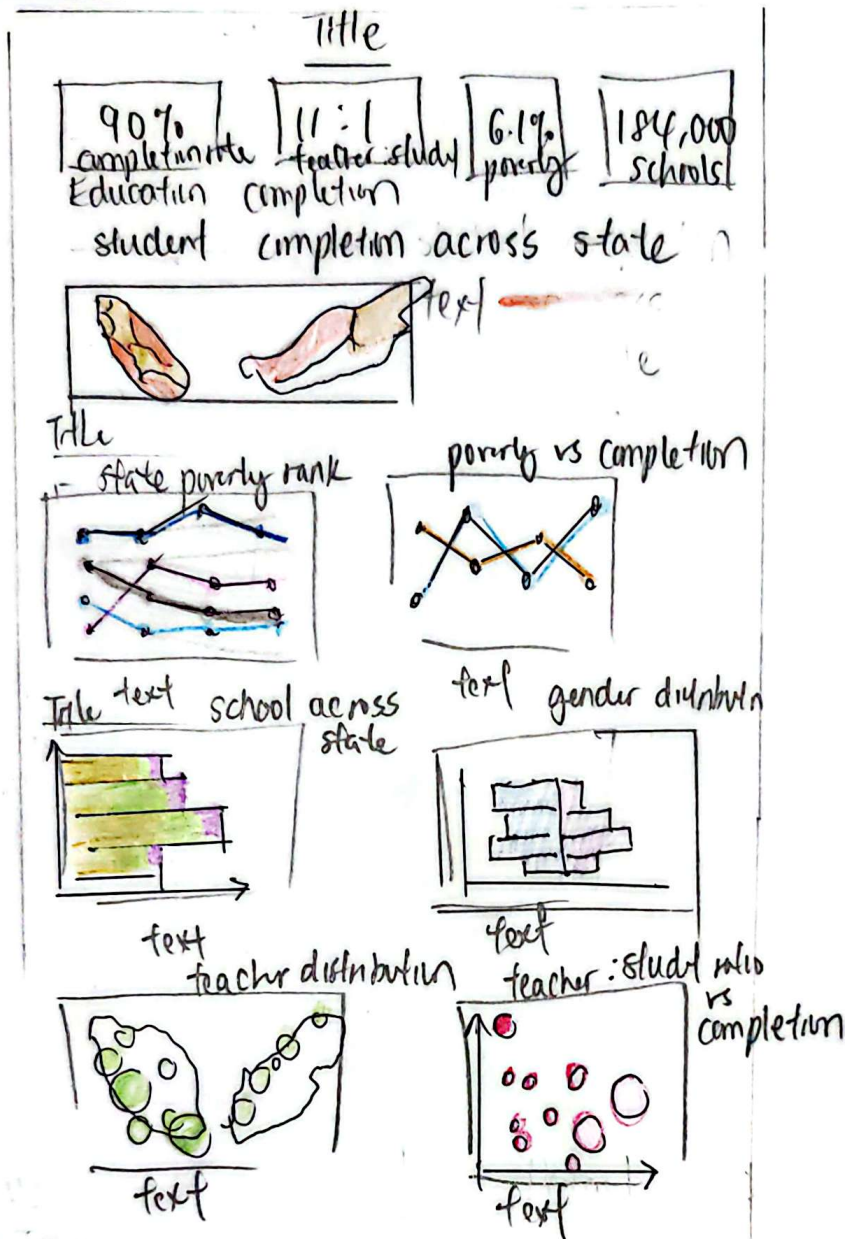 Title
90% 11:1 6.1% 184,000
completion rate teacher:study poverty schools
Education completion
student completion across state
text
Title
- state poverty rank poverty vs completion
text text
Title school across gender
state
text text
teacher distribution teacher: ratio
vs
completion
text text